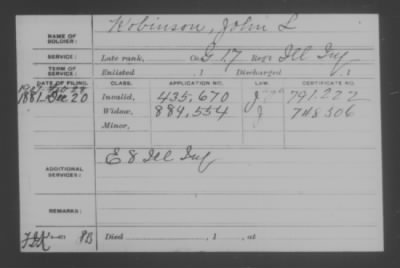 NAME OF SOLDIER: Robinson, John L
SERVICE: Late rank, Co. G. 17 Reg't Ill Inf
TERM OF SERVICE: Enlisted , 1 Discharged , 1
DATE OF FILING. CLASS. APPLICATION NO. LAW. CERTIFICATE NO.
1881 Dec 20 Invalid, 435,670 791.222
Widow, 889,554 J 748506
Minor,
ADDITIONAL SERVICES: E 8 Ill Inf
REMARKS:
Died , 1 , at